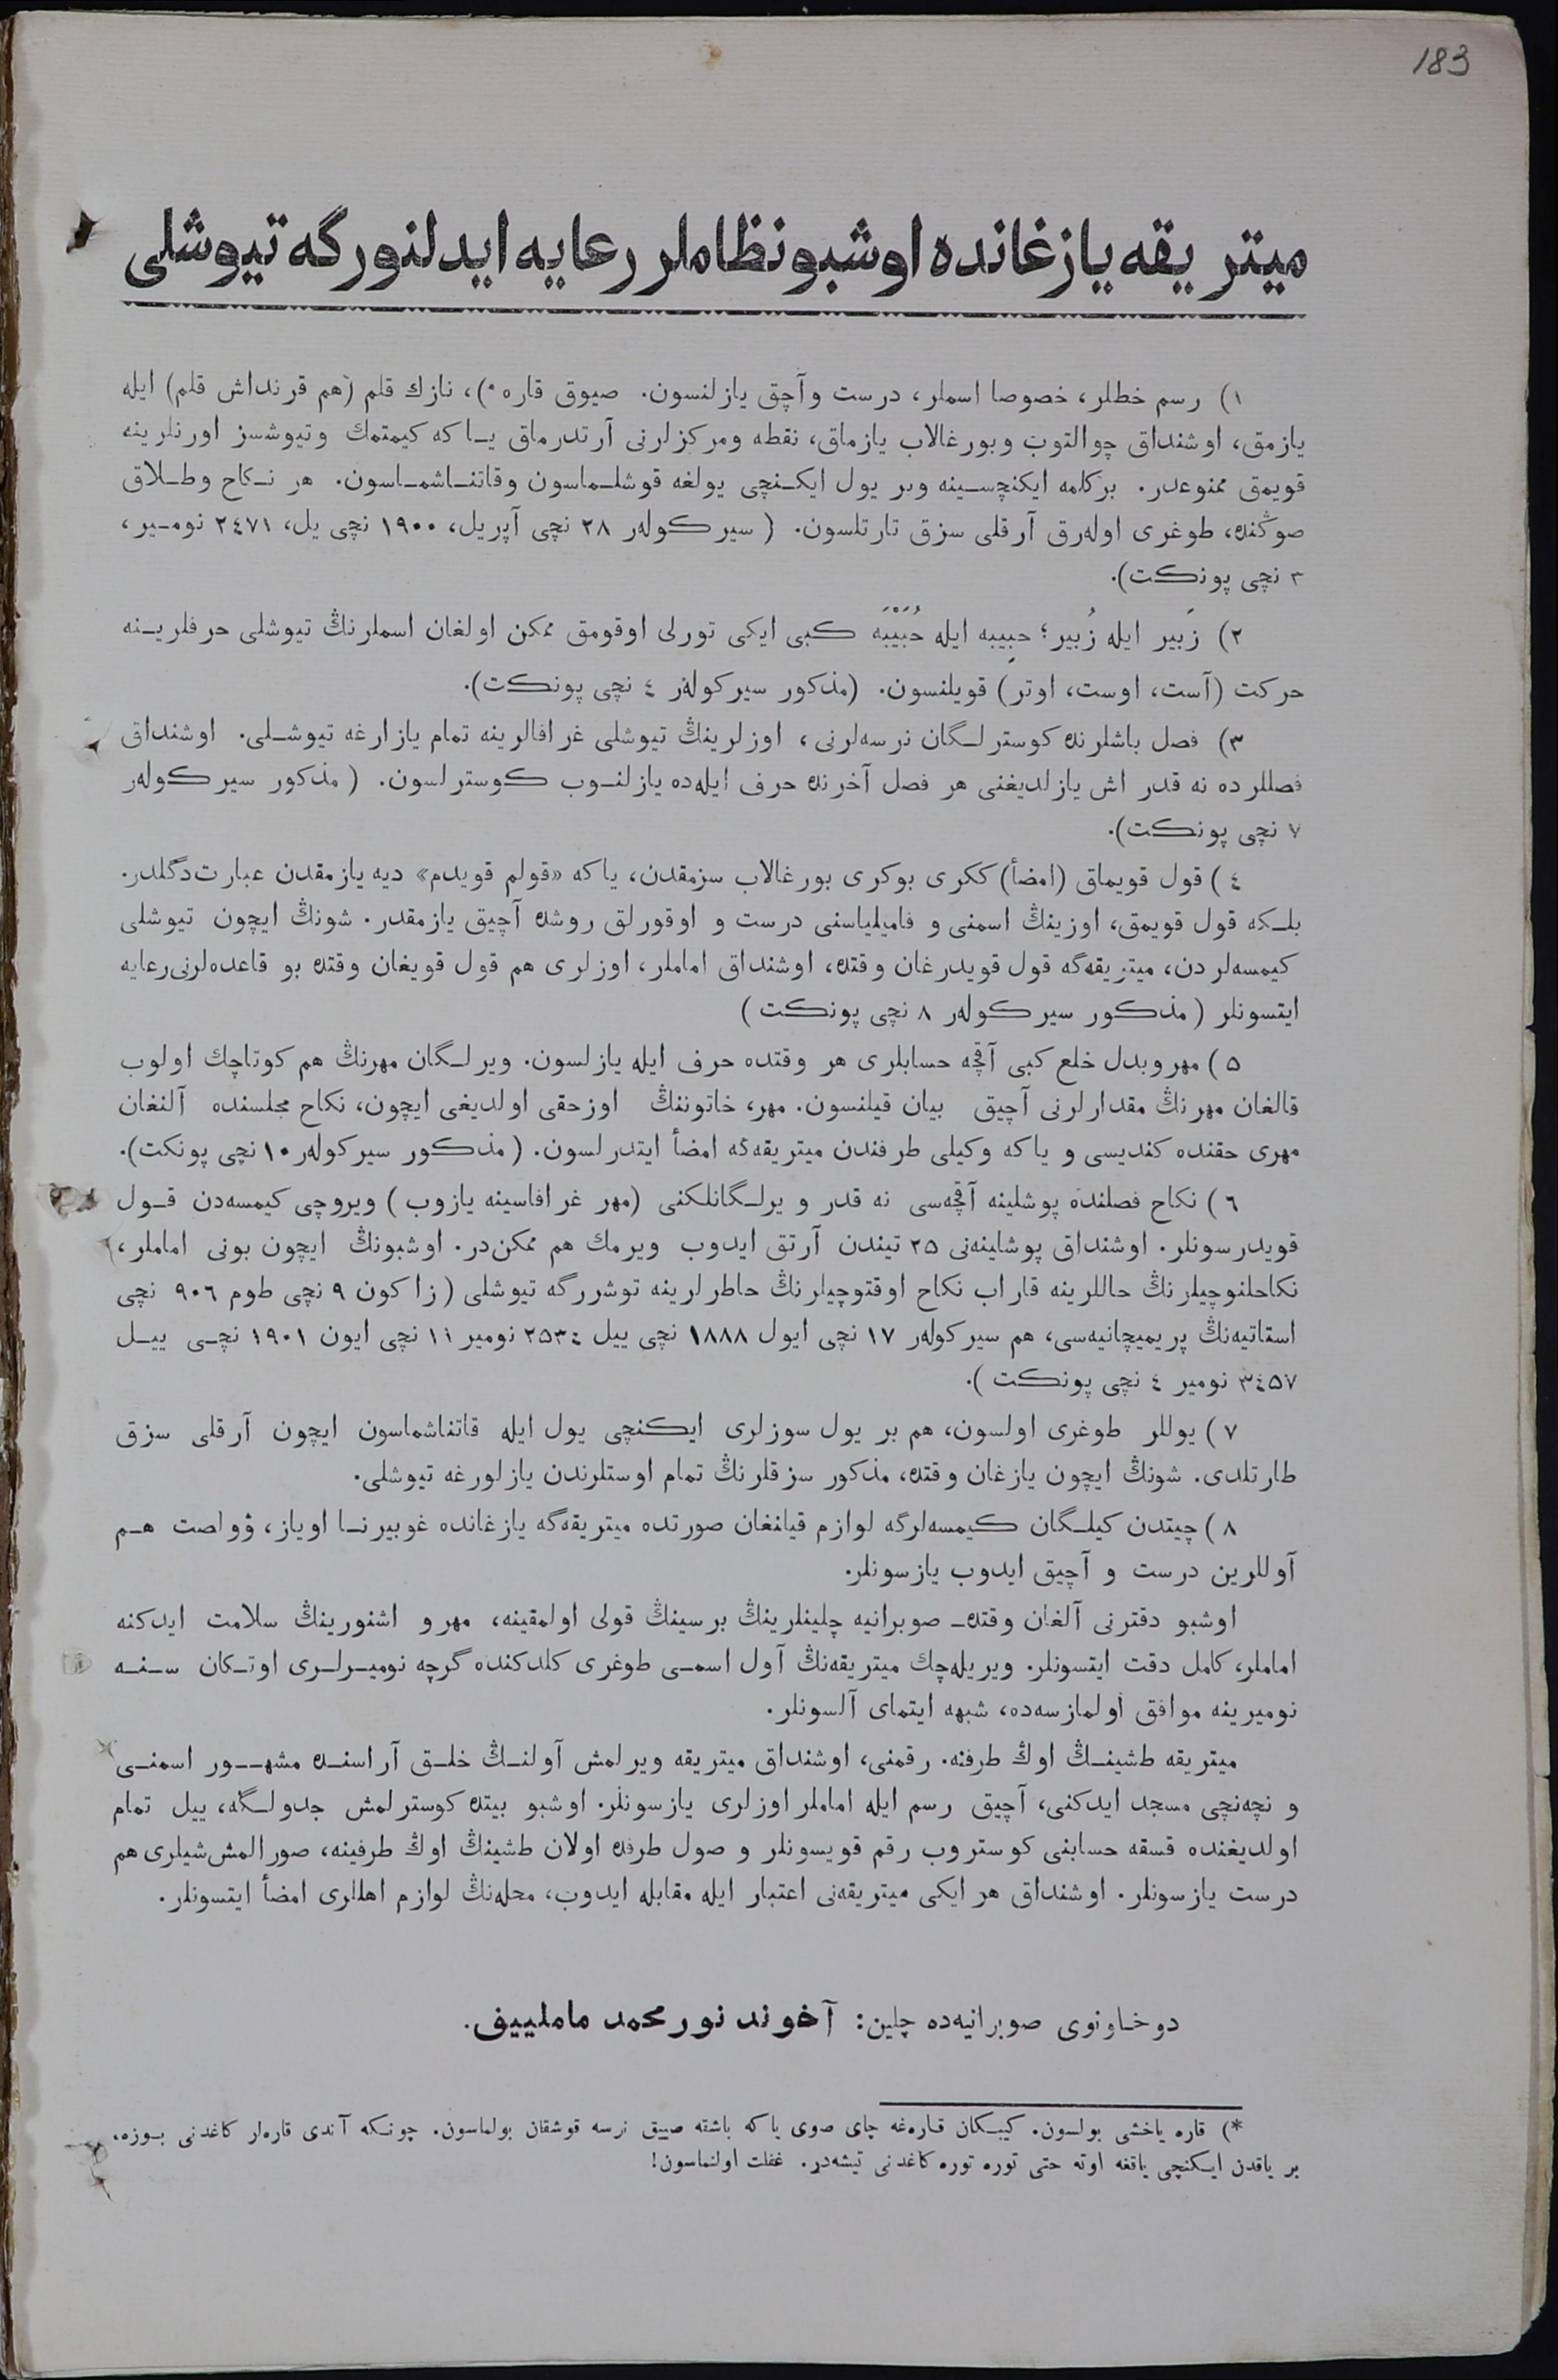 183
ميتريقه يازغانده اوشبو نظاملر رعايه ايدلنورگه تيوشلى
١) رسم خطلر، خصوصا اسملر، درست وآچق يازلنسون. صيوق قاره *)، نازك قلم (هم قرنداش قلم) ايله
يازمق، اوشنداق چوالتوب وبورغالاب يازماق، نقطه ومركزلرنى آرتدرماق يـاكه كيمتمك وتيوشسز اورنلرينه
قويمق ممنوعدر. بركلمه ايكنچسـينه وبر يول ايكـنچى يولغه قوشلـماسون وقاتنـاشمـاسون. هر نـكاح وطـلاق
صوڭنده، طوغرى اولەرق آرقلى سزق تارتلسون. (سيركولەر ٢٨ نچى آپريل، ١٩٠٠ نچى يل، ٢٤٧١ نومـير،
٣ نچى پونكت).
٢) زَبير ايله زُبير؛ حبِيبه ايله حُبَيْبَه كبى ايكى تورلى اوقومق ممكن اولغان اسملرنڭ تيوشلى حرفلريـنه
حركت (آست، اوست، اوتر) قويلنسون. (مذكور سيركولەر ٤ نچى پونكت).
٣) فصل باشلرنده كوسترلـگان نرسەلرنى، اوزلرينڭ تيوشلى غرافالرينه تمام يازارغه تيوشـلى. اوشنداق
فصللرده نه قدر اش يازلديغنى هر فصل آخرنده حرف ايلەده يازلنـوب كوسترلسون. (مذكور سيركولەر
٧ نچى پونكت).
٤) قول قويماق (امضأ) ككرى بوكرى بورغالاب سزمقدن، ياكه «قولم قويدم» ديه يازمقدن عبارت دگلدر.
بلـكه قول قويمق، اوزينڭ اسمنى و فاميلياسنى درست و اوقورلق روشده آچيق يازمقدر. شونڭ ايچون تيوشلى
كيمسەلردن، ميتريقەگه قول قويدرغان وقتده، اوشنداق اماملر، اوزلرى هم قول قويغان وقتده بو قاعدەلرنى رعايه
ايتسونلر (مذكور سيركولەر ٨ نچى پونكت)
٥) مهر وبدل خلع كبى آقچه حسابلرى هر وقتده حرف ايله يازلسون. ويرلـگان مهرنڭ هم كوتاچك اولوب
قالغان مهرنڭ مقدارلرنى آچيق بيان قيلنسون. مهر، خاتوننڭ اوزحقى اولديغى ايچون، نكاح مجلسنده آلنغان
مهرى حقنده كنديسى و ياكه وكيلى طرفندن ميتريقەگه امضأ ايتدرلسون. (مذكور سيركولەر ١٠ نچى پونكت).
٦) نكاح فصلنده پوشلينه آقچەسى نه قدر ويرلـگانلكنى (مهر غرافاسينه يازوب) ويروچى كيمسەدن قـول
قويدرسونلر. اوشنداق پوشلينەنى ٢٥ تيندن آرتق ايدوب ويرمك هم ممكن در. اوشبونڭ ايچون بونى اماملر،
نكاحلنوچيلرنڭ حاللرينه قاراب نكاح اوقتوچيلرنڭ خاطرلرينه توشررگه تيوشلى (زاكون ٩ نچى طوم ٩٠٦ نچى
استاتيەنڭ پريميچانيەسى، هم سيركولەر ١٧ نچى ايول ١٨٨٨ نچى ييل ٢٥٣٤ نومير ١١ نچى ايون ١٩٠١ نچـى ييـل
٣٤٥٧ نومير ٤ نچى پونكت).
٧) يوللر طوغرى اولسون، هم بر يول سوزلرى ايكنچى يول ايله قاتناشماسون ايچون آرقلى سزق
طارتلدى. شونڭ ايچون يازغان وقتده، مذكور سزقلرنڭ تمام اوستلرندن يازلورغه تيوشلى.
٨) چيتدن كيلـگان كيمسەلرگه لوازم قيلنغان صورتده ميتريقەگه يازغانده غوبيرنـا اوياز، ۋولصت هـم
آوللرين درست و آچيق ايدوب يازسونلر.
اوشبو دفترنى آلغان وقتده صوبرانيه چلينلرينڭ برسينڭ قولى اولمقينه، مهر و اشنورينڭ سلامت ايدكنه
اماملر، كامل دقت ايتسونلر. ويريلەچك ميتريقەنڭ آول اسمـى طوغرى كلدكنده گرچه نوميـرلـرى اوتـكان سـنـه
نوميرينه موافق اولمازسەده، شبهه ايتماى آلسونلر.
ميتريقه طشينـڭ اوڭ طرفنه. رقمنى، اوشنداق ميتريقه ويرلمش آولنـڭ خلـق آراسنـده مشهـور اسمنـى
و نچەنچى مسجد ايدكنى، آچيق رسم ايله اماملر اوزلرى يازسونلر. اوشبو بيتده كوسترلمش جدولـگه، ييل تمام
اولديغنده قسقه حسابنى كوستروب رقم قويسونلر و صول طرفده اولان طشينڭ اوڭ طرفينه، صورالمش شيلرى هم
درست يازسونلر. اوشنداق هر ايكى ميتريقەنى اعتبار ايله مقابله ايدوب، محلەنڭ لوازم اهللرى امضأ ايتسونلر.
دوخاونوى صوبرانيەده چلين: آخوند نورمحمد ماملييف.
*) قاره ياخشى بولسون. كيبـكان قارەغه چاى صوى ياكه باشقه صييق نرسه قوشقان بولماسون. چونكه آندى قارەلر كاغدنى بـوزه،
بر ياقدن ايـكنچى ياقغه اوته حتى توره توره كاغدنى تيشەدر. غفلت اولنماسون!